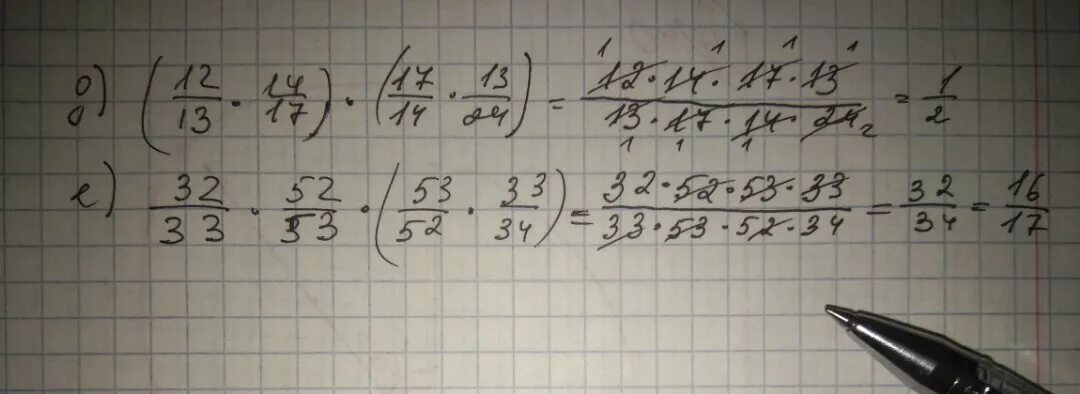 д) (12/13 · 14/17) · (17/14 · 13/24) = 12·14·17·13 / 13·17·14·24 = 1/2
е) 32/33 · 52/53 · (53/52 · 33/34) = 32·52·53·33 / 33·53·52·34 = 32/34 = 16/17